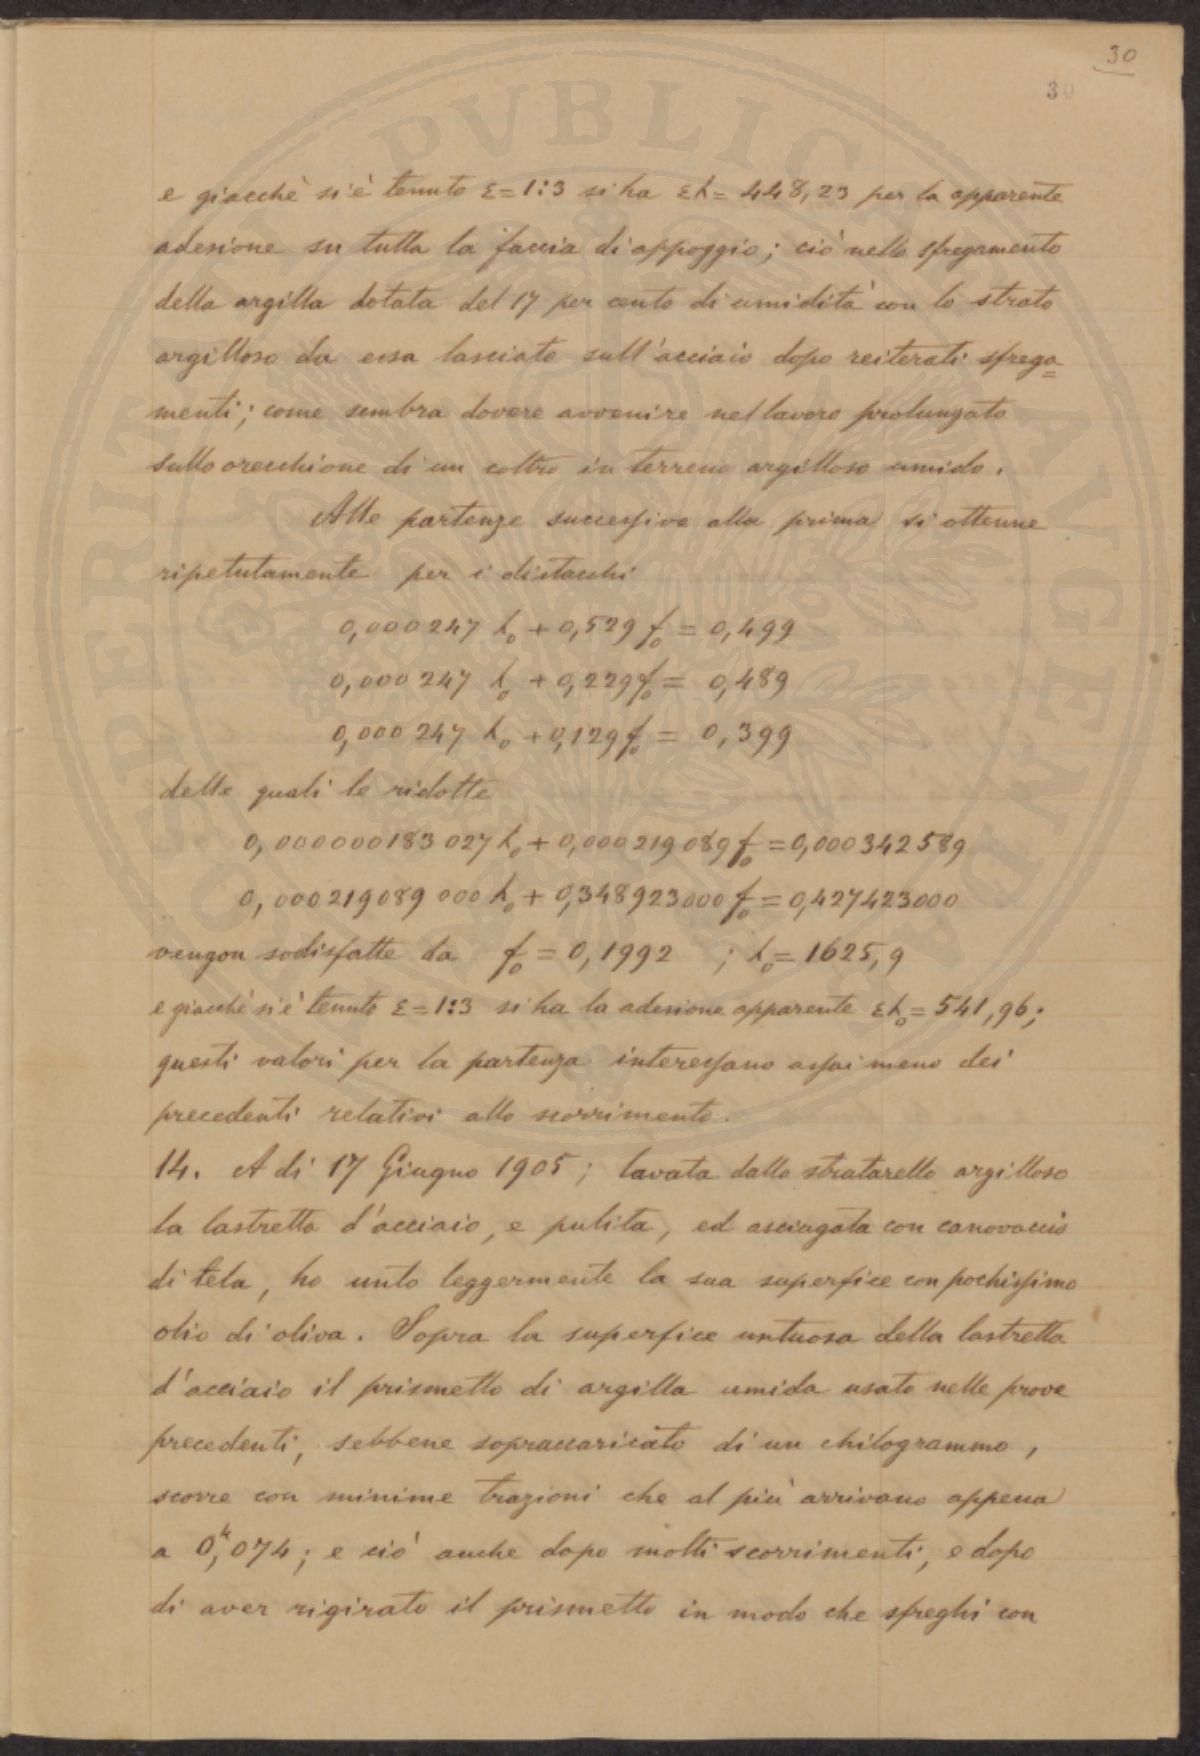 30
30
e giacchè si è tenuto ε=1:3 si ha εk= 448,23 per la apparente
adesione su tutta la faccia di appoggio; ciò nello sfregamento
della argilla dotata del 17 per cento di umidità con lo strato
argilloso da essa lasciato sull'acciaio dopo reiterati sfrega=
menti; come sembra dovere avvenire nel lavoro prolungato
sullo orecchione di un coltro in terreno argilloso umido.
Alle partenze successive alla prima si ottenne
ripetutamente per i distacchi
0,000247 k₀ + 0,529 f₀ = 0,499
0,000247 k₀ + 0,229 f₀ = 0,489
0,000247 k₀ + 0,129 f₀ = 0,399
delle quali le ridotte
0,000000183027 k₀ + 0,000219089 f₀ = 0,000342589
0,000219089000 k₀ + 0,348923000 f₀ = 0,427423000
vengon sodisfatte da f₀ = 0,1992 ; k₀ = 1625,9
e giacchè si è tenuto ε=1:3 si ha la adesione apparente εk₀ = 541,96;
questi valori per la partenza interessano assai meno dei
precedenti relativi allo scorrimento.
14. A di 17 Giugno 1905; lavata dallo stratarello argilloso
la lastretta d'acciaio, e pulita, ed asciugata con canovaccio
di tela, ho unto leggermente la sua superfice con pochissimo
olio di oliva. Sopra la superfice untuosa della lastretta
d'acciaio il prismetto di argilla umida usato nelle prove
precedenti, sebbene sopraccaricato di un chilogrammo,
scorre con minime trazioni che al più arrivano appena
a 0,ᵏ074; e ciò anche dopo molti scorrimenti, e dopo
di aver rigirato il prismetto in modo che sfreghi con